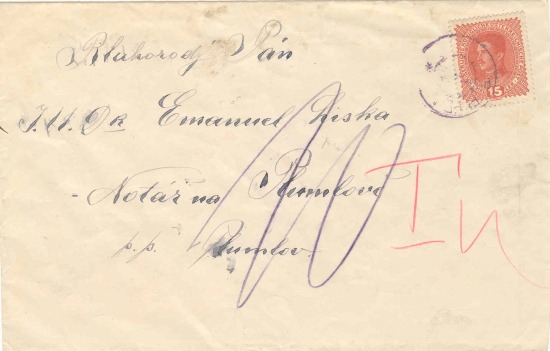 Blahorodj Pán
J. U. Dr Emanuel Ziska
Notář na Plumlově
p. p. Plumlov.
15